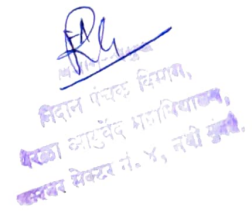 निदान पंचक विभाग,
येरळा आयुर्वेद महाविद्यालय,
खारघर सेक्टर नं. ४, नवी मुंबई